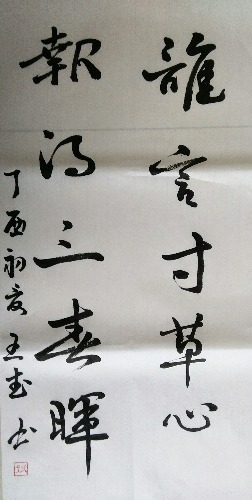 誰言寸草心
報得三春暉
丁酉初夏 王 书